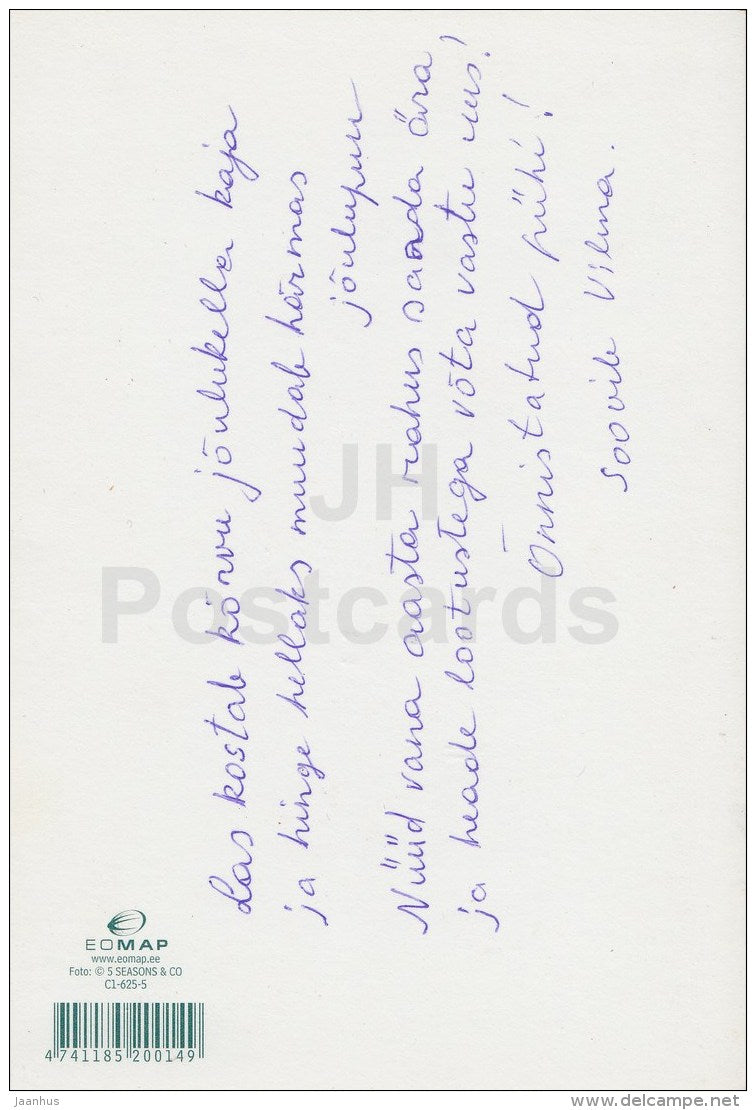 Las kostab kõrvu jõulukella kaja
ja hinge hellaks muudab härmas
jõulupuu
Nüüd vana aasta rahus saada ära
ja heade lootustega võta vastu uus!
Õnnistatud pühi!
Soovib Vilma.
JH
Postcards
EOMAP
www.eomap.ee
Foto: © 5 SEASONS & CO
C1-625-5
4 741185 200149
Jaanhus
delcampe.net